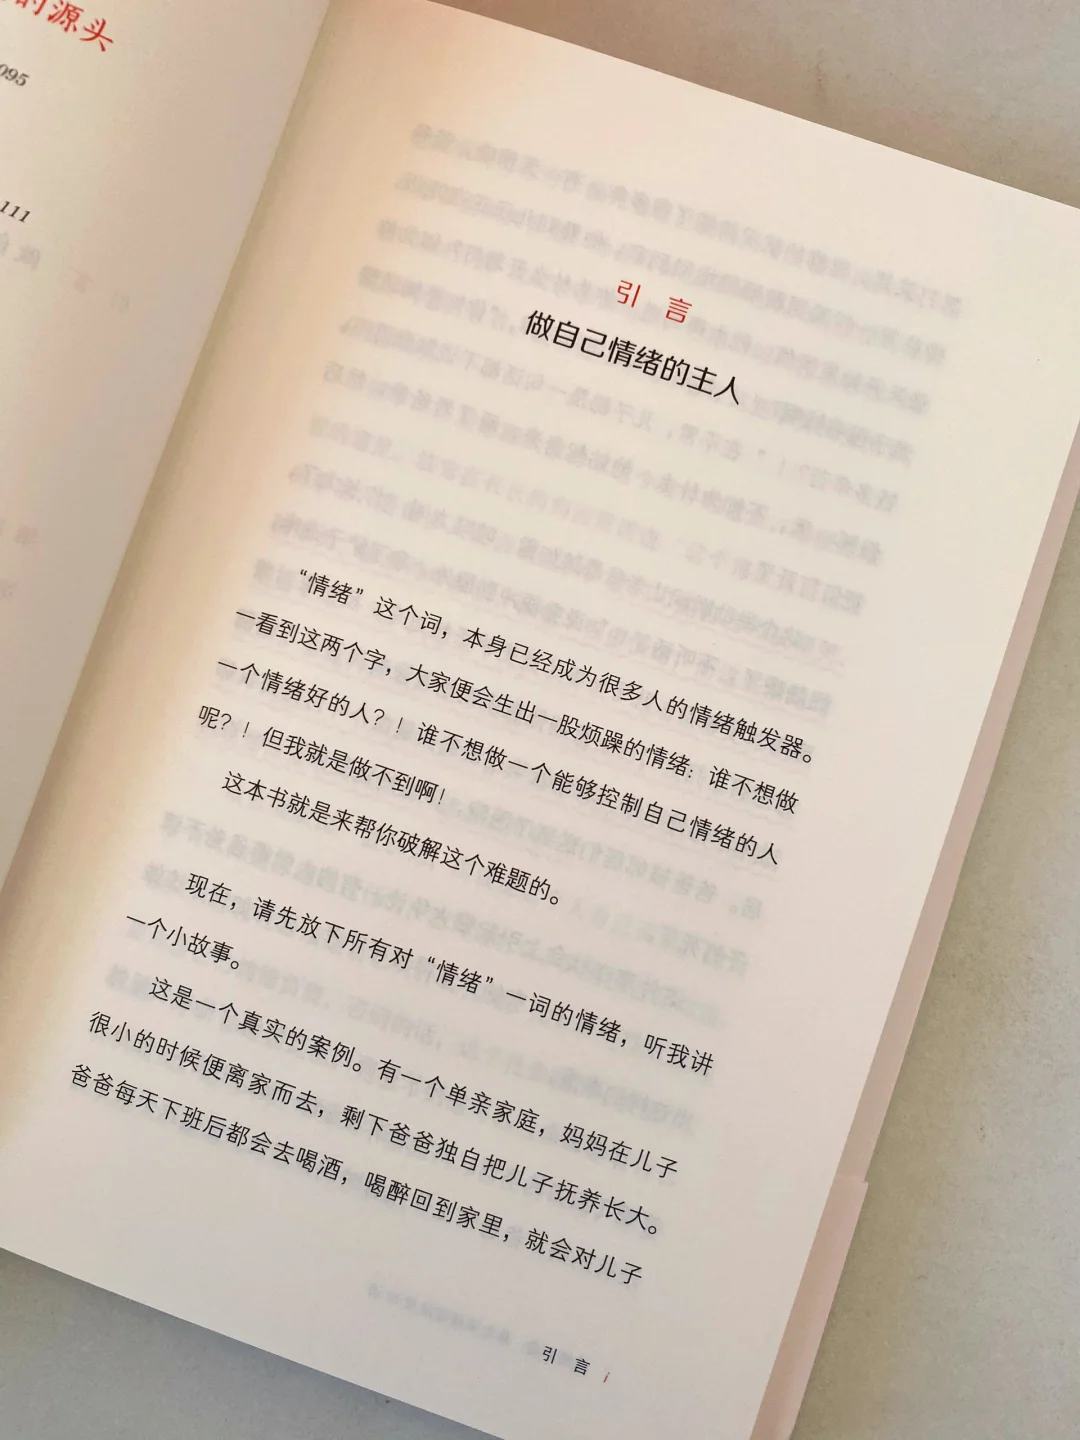 的源头
095
111
引言
做自己情绪的主人
“情绪”这个词，本身已经成为很多人的情绪触发器。
一看到这两个字，大家便会生出一股烦躁的情绪：谁不想做
一个情绪好的人？！谁不想做一个能够控制自己情绪的人
呢？！但我就是做不到啊！
这本书就是来帮你破解这个难题的。
现在，请先放下所有对“情绪”一词的情绪，听我讲
一个小故事。
这是一个真实的案例。有一个单亲家庭，妈妈在儿子
很小的时候便离家而去，剩下爸爸独自把儿子抚养长大。
爸爸每天下班后都会去喝酒，喝醉回到家里，就会对儿子
引言 i